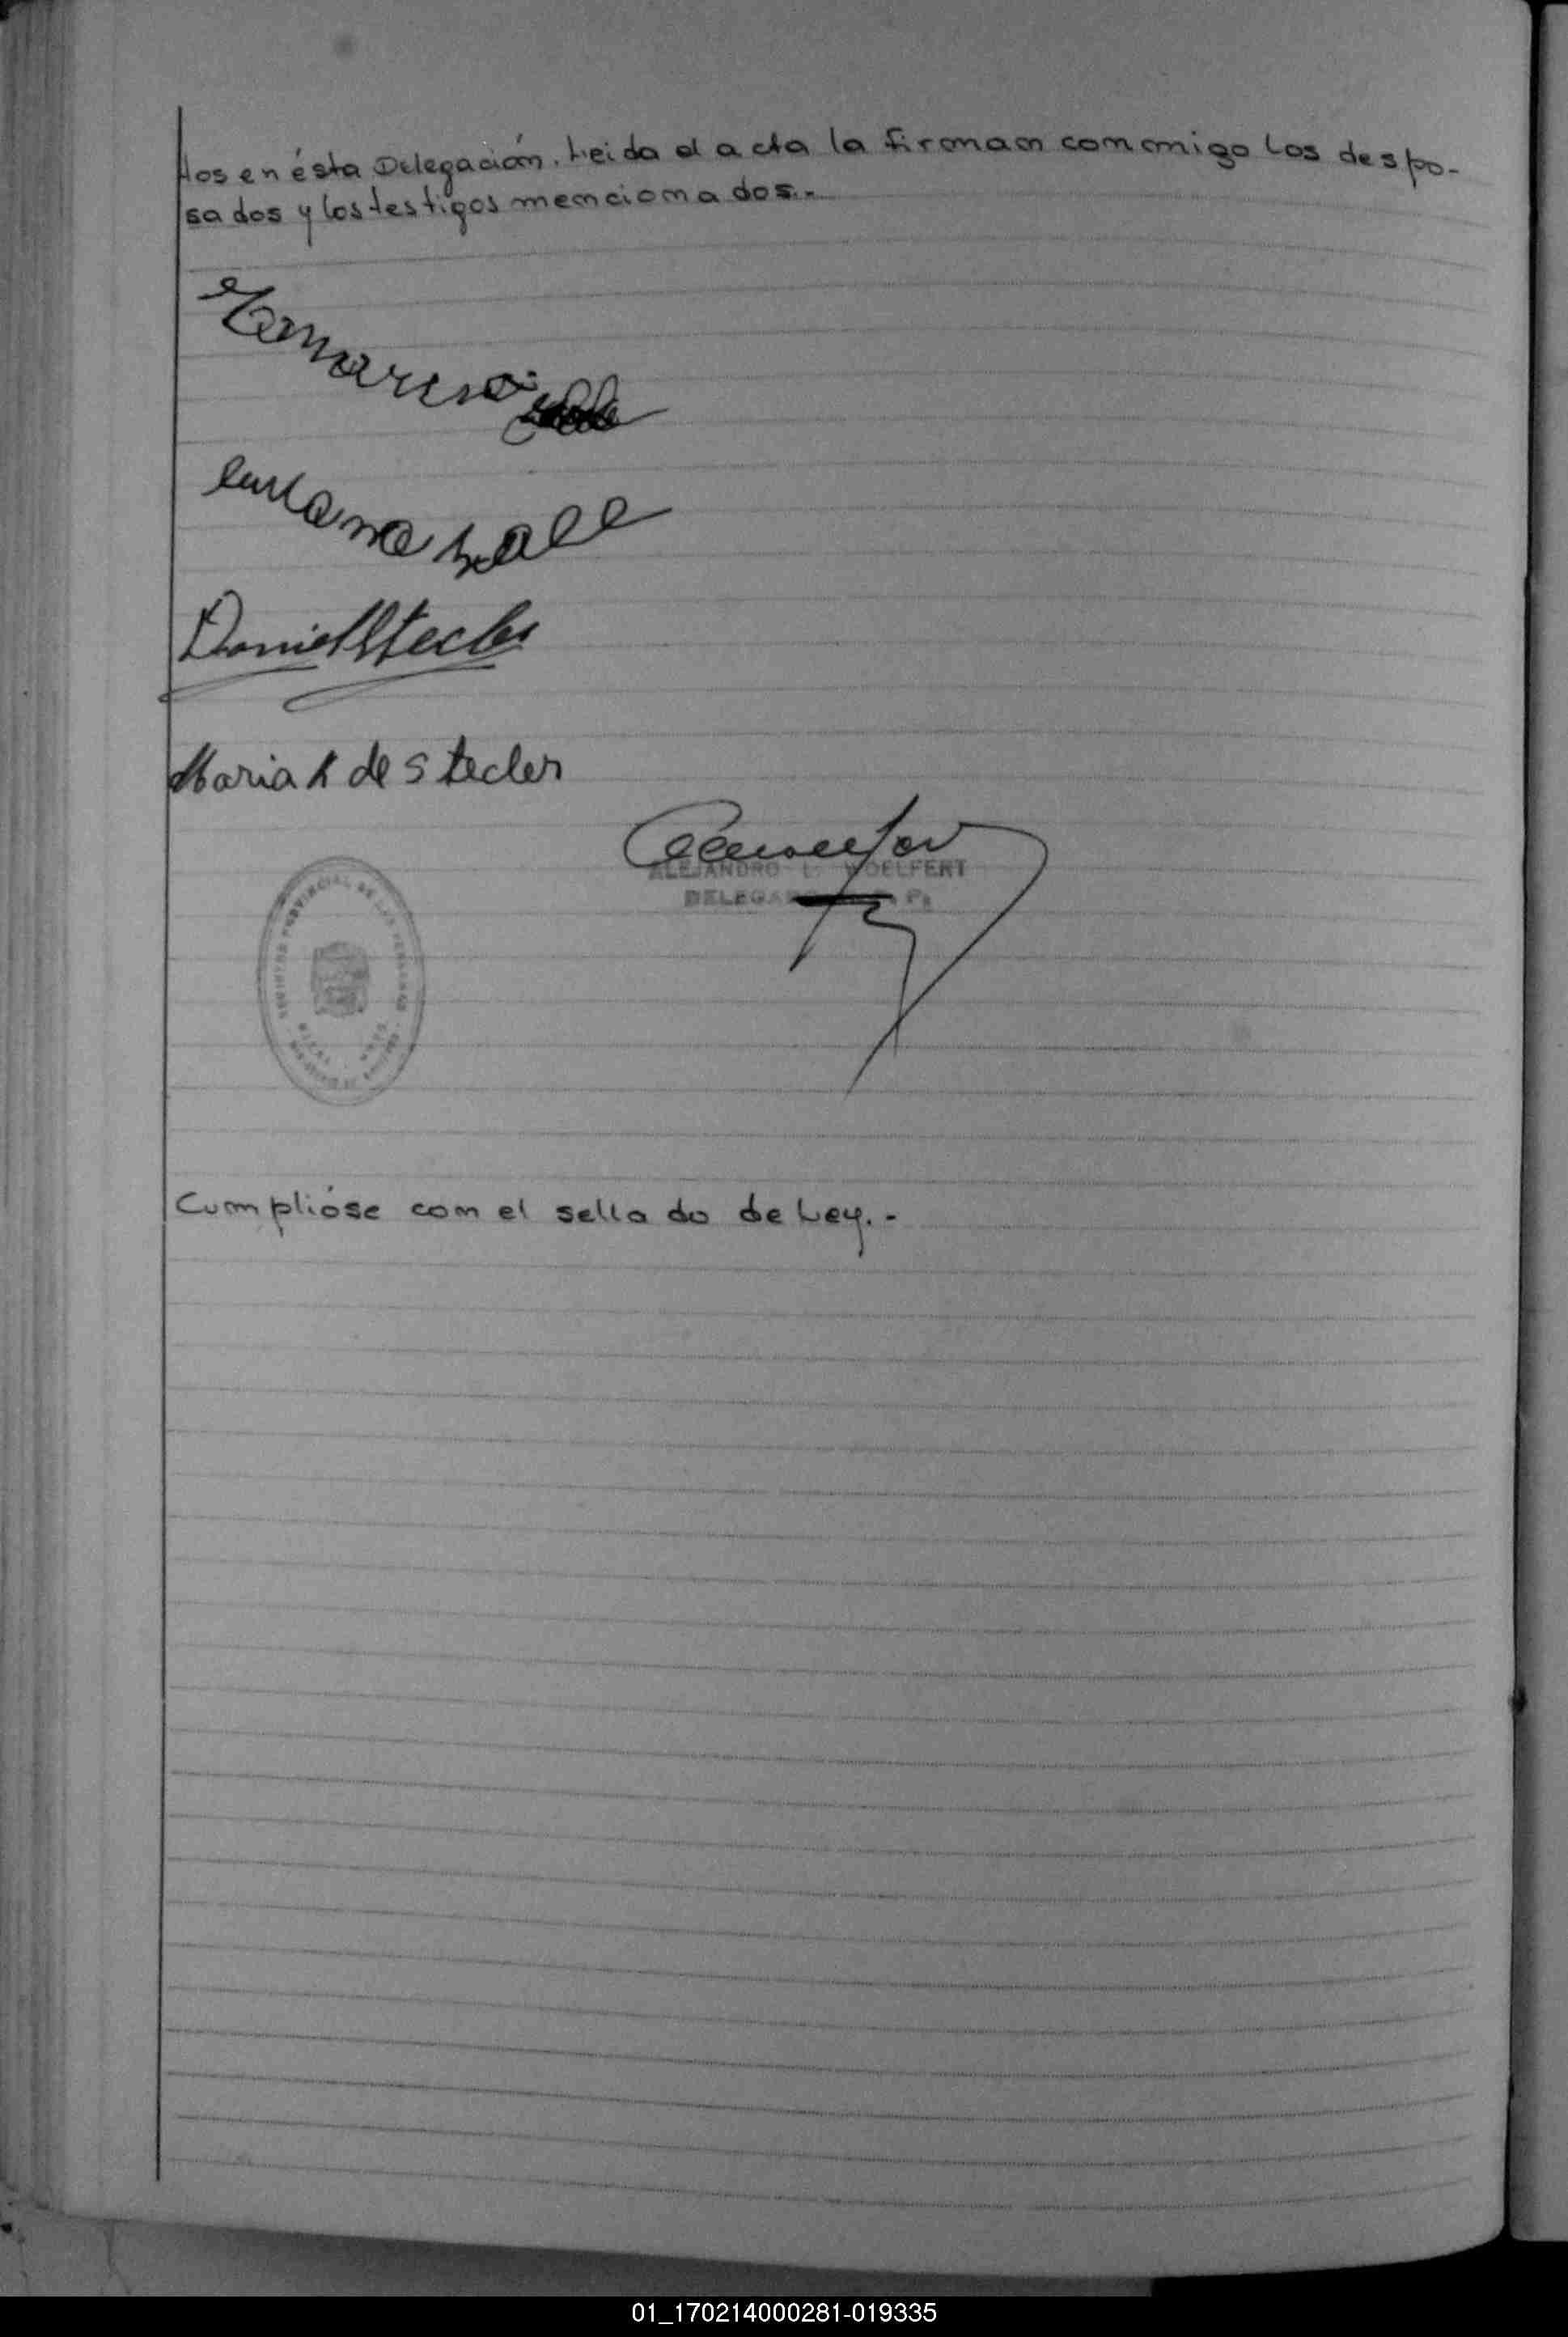 dos en ésta Delegación. Leida el acta la firman conmigo los despo-
sados y los testigos mencionados.-
Daniel Stecler
Maria K de Stecler
ALEJANDRO L. WOELFERT
DELEGADO
PROVINCIAL DE LAS PERSONAS
Cumplióse con el sellado de Ley.-
01_170214000281-019335